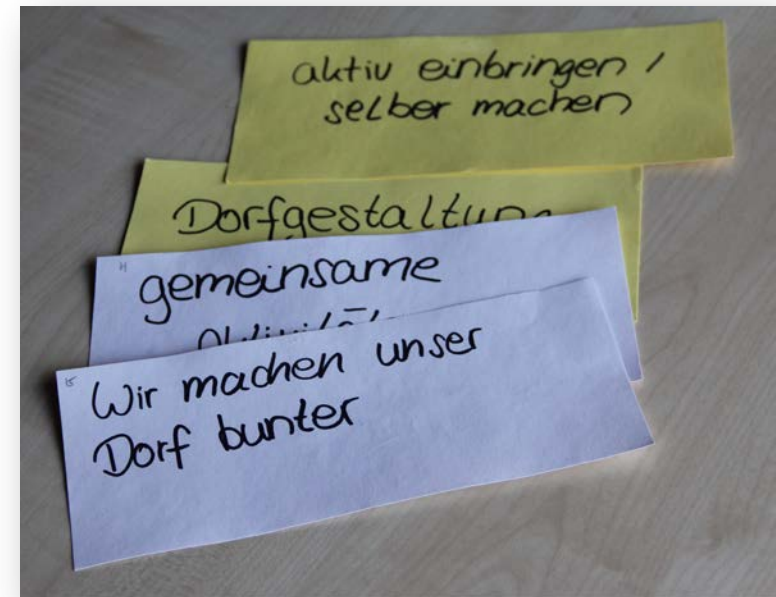 aktiv einbringen /
selber machen
Dorfgestaltung
gemeinsame
Wir machen unser
Dorf bunter